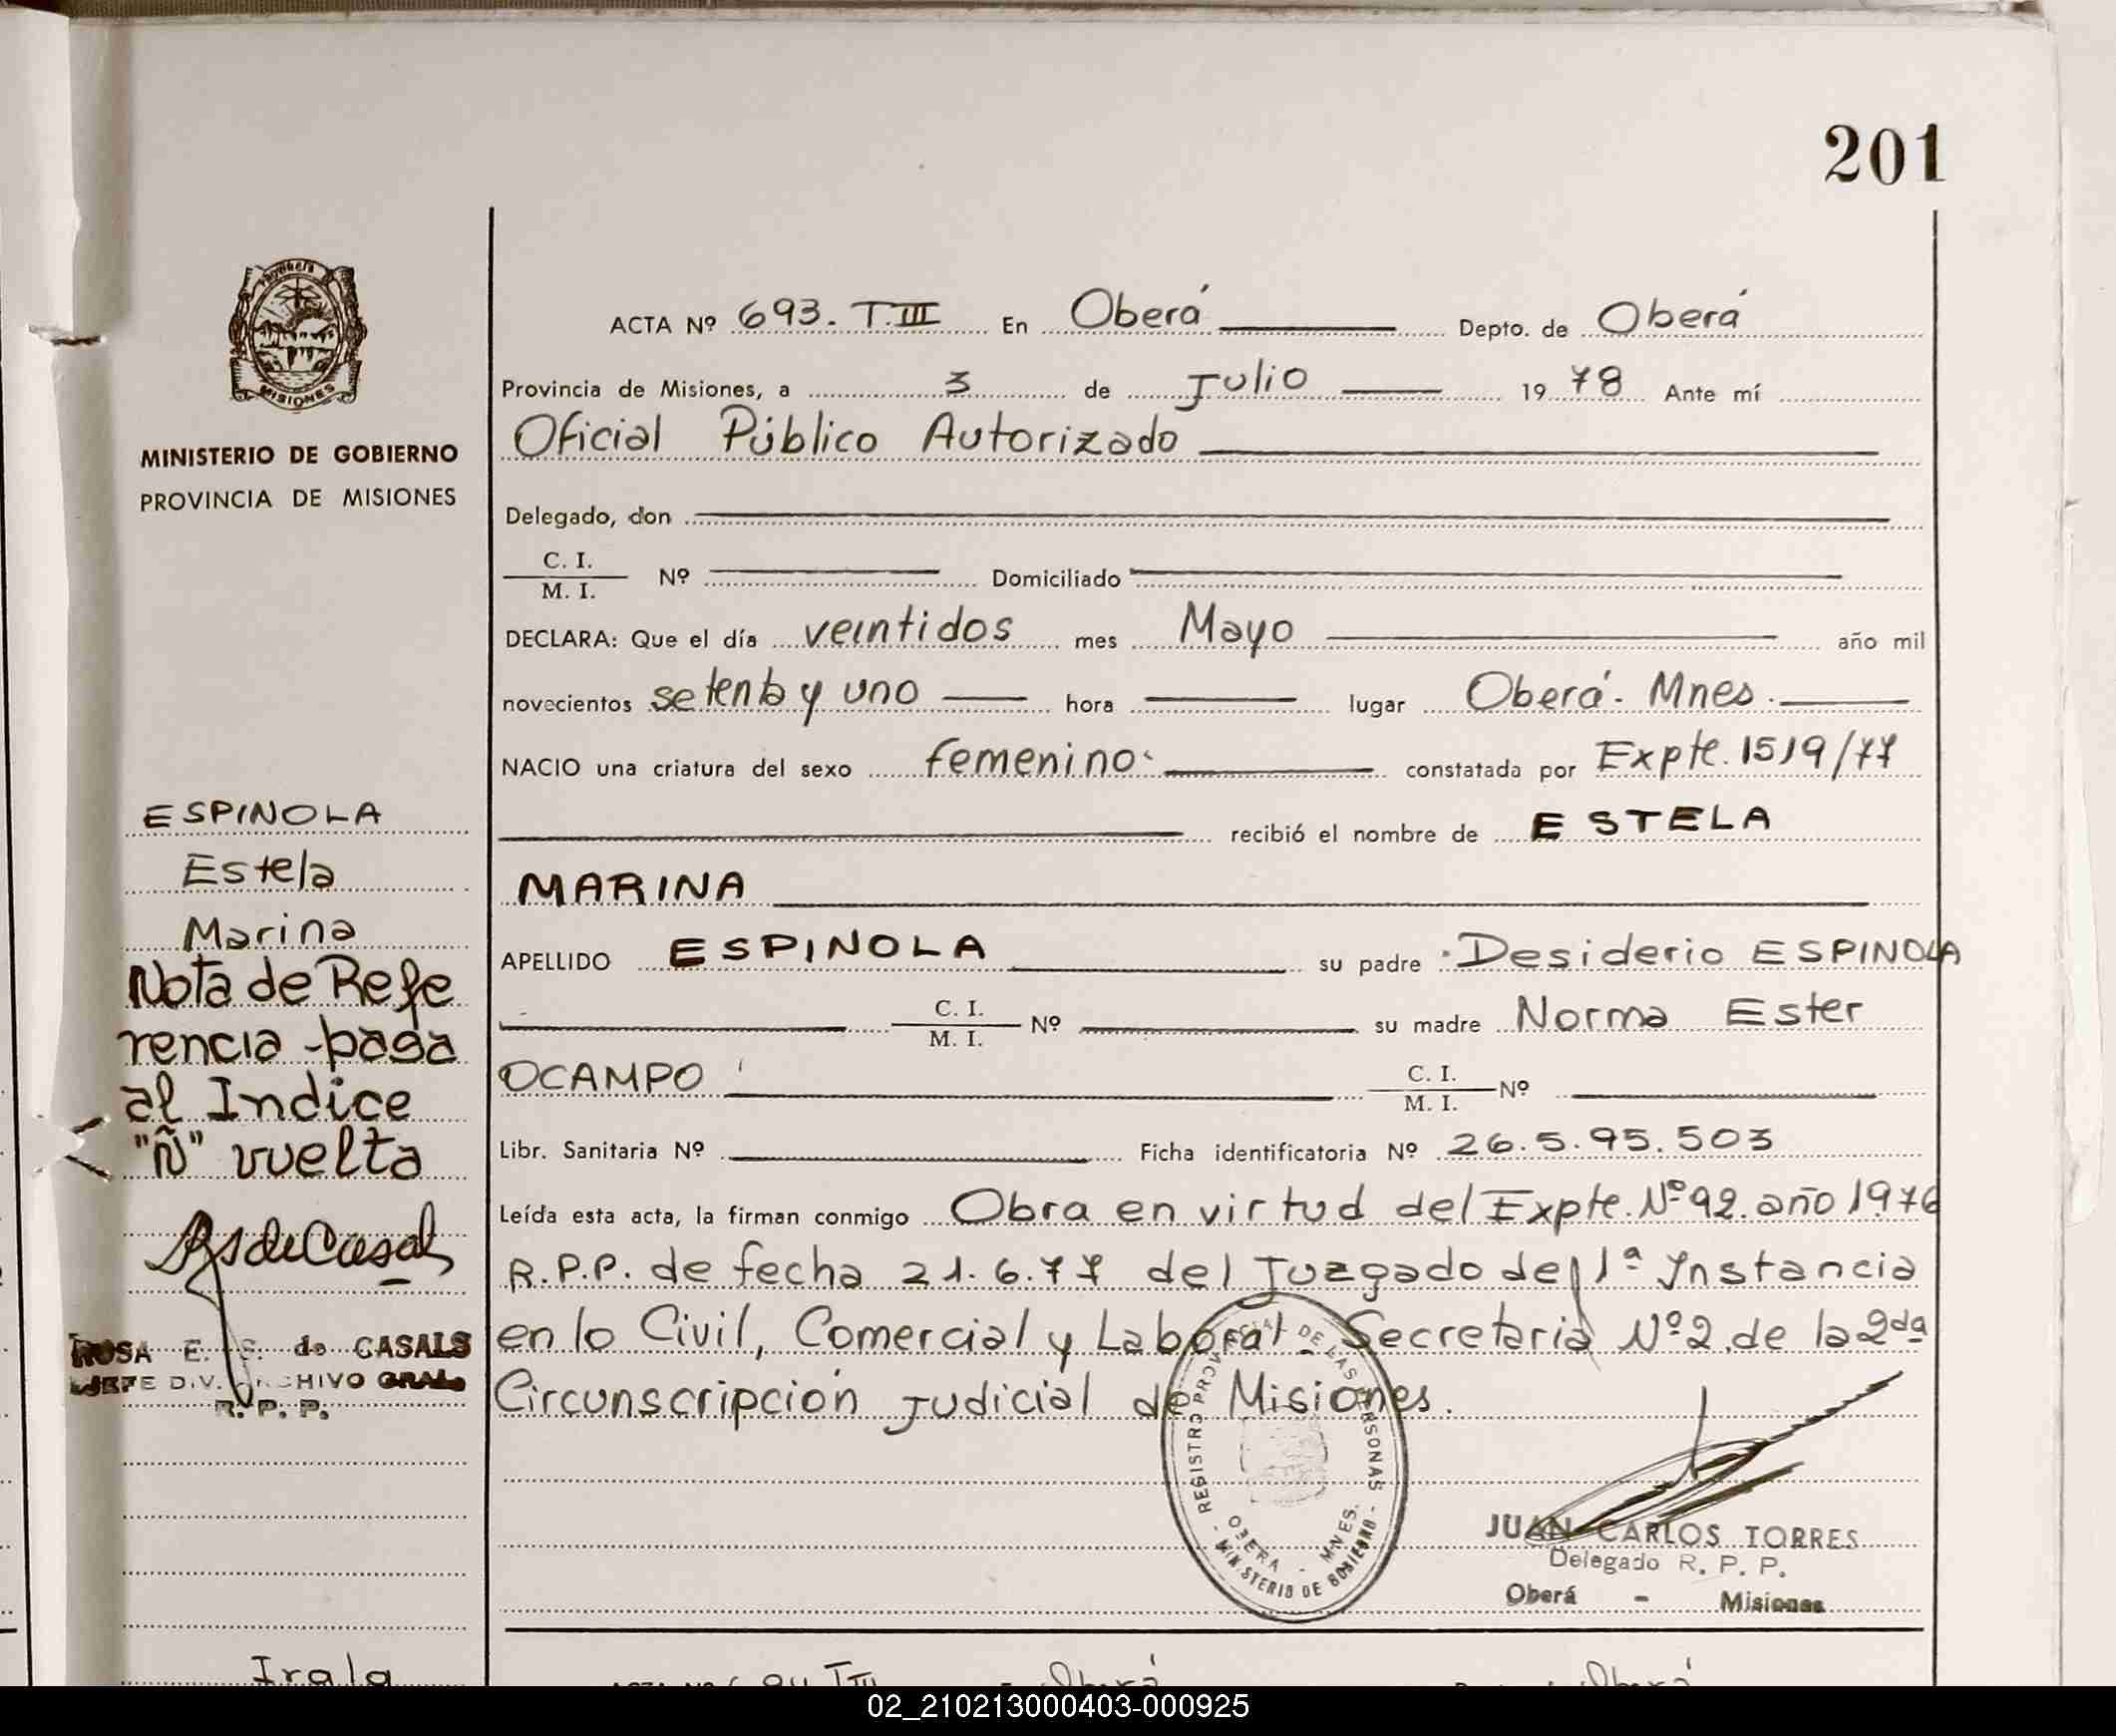 201
PROVINCIA
MISIONES
MINISTERIO DE GOBIERNO
PROVINCIA DE MISIONES
ESPINOLA
Estela
Marina
Nota de Refe
rencia - pasa
al Indice
"Ñ" vuelta
RsdeCasals
ROSA E. S. de CASALS
JEFE DIV. ARCHIVO GRAL.
R. P. P.
Irala
ACTA Nº 693. T.III En Oberá Depto. de Oberá
Provincia de Misiones, a 3 de Julio 1978 Ante mí
Oficial Público Autorizado
Delegado, don
C. I.
M. I. Nº Domiciliado
DECLARA: Que el día veintidos mes Mayo año mil
novecientos setenta y uno hora lugar Oberá - Mnes.
NACIO una criatura del sexo femenino constatada por Expte. 1519/77
recibió el nombre de ESTELA
MARINA
APELLIDO ESPINOLA su padre Desiderio ESPINOLA
C. I.
M. I. Nº su madre Norma Ester
OCAMPO C. I.
M. I. Nº
Libr. Sanitaria Nº Ficha identificatoria Nº 26.5.95.503
Leída esta acta, la firman conmigo Obra en virtud del Expte. Nº 92. año 1976
R.P.P. de fecha 21.6.77 del Juzgado de 1ª Instancia
en lo Civil, Comercial y Laboral - Secretaria Nº 2. de la 2da
Circunscripción Judicial de Misiones.
REGISTRO PROVINCIAL DE LAS PERSONAS
OBERA - MNES.
MINISTERIO DE GOBIERNO
JUAN CARLOS TORRES
Delegado R. P. P.
Oberá - Misiones
02_210213000403-000925